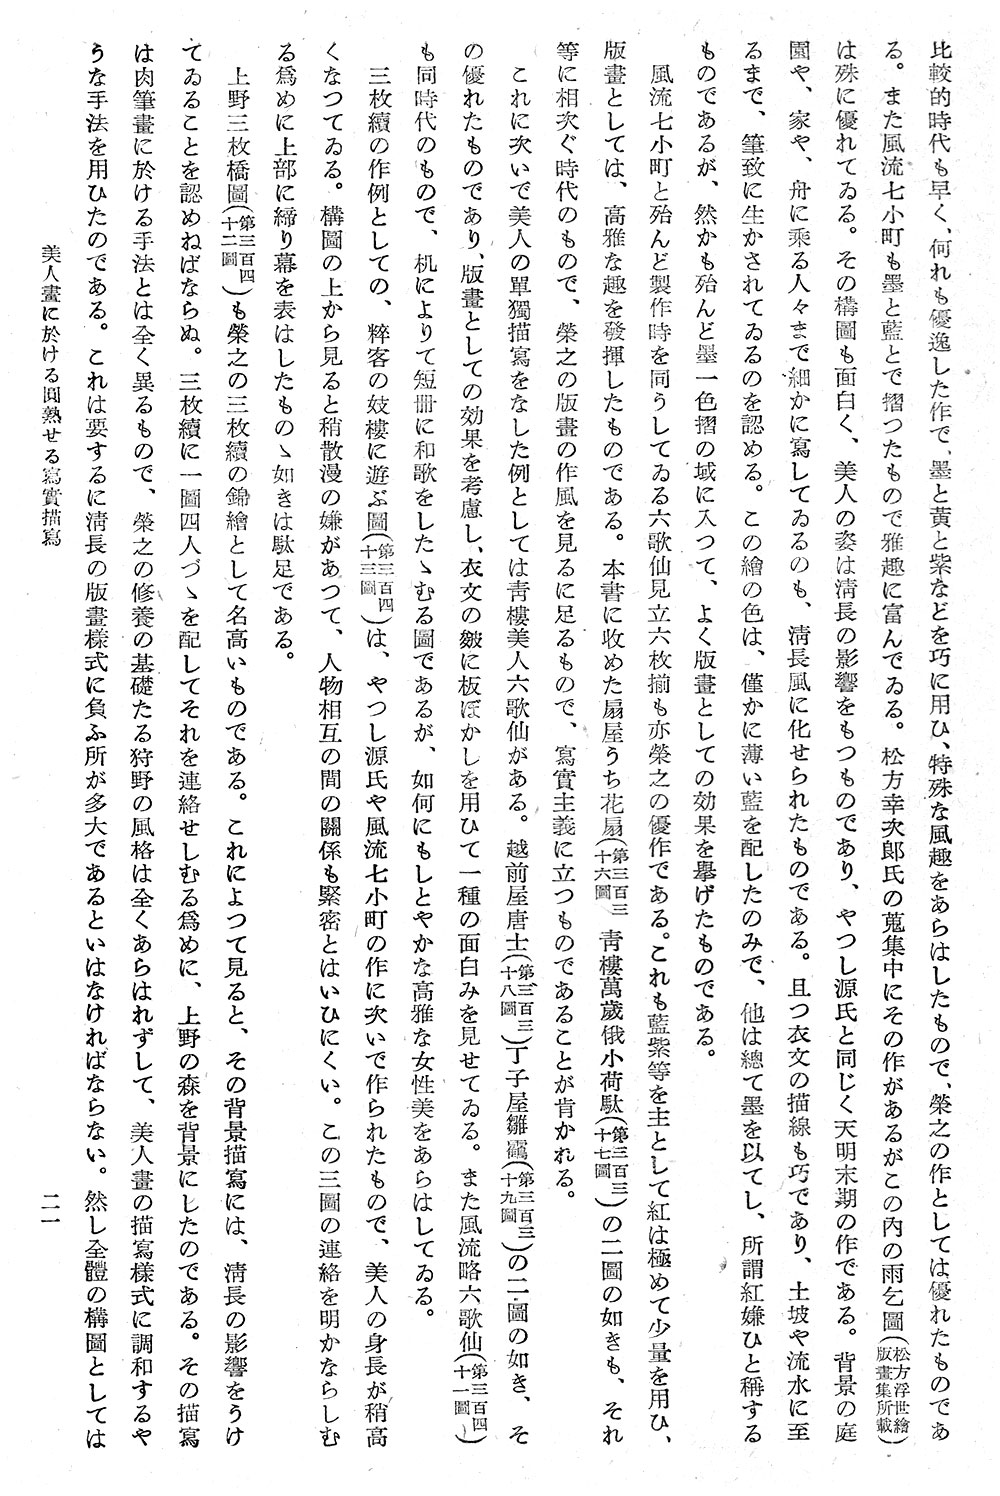 比較的時代も早く、何れも優逸した作で、墨と黃と紫などを巧に用ひ、特殊な風趣をあらはしたもので、榮之の作としては優れたものであ
る。また風流七小町も墨と藍とで摺つたもので雅趣に富んでゐる。松方幸次郎氏の蒐集中にその作があるがこの內の雨乞圖(松方浮世繪版畫集所載)
は殊に優れてゐる。その構圖も面白く、美人の姿は淸長の影響をもつものであり、やつし源氏と同じく天明末期の作である。背景の庭
園や、家や、舟に乘る人々まで細かに寫してゐるのも、淸長風に化せられたものである。且つ衣文の描線も巧であり、土坡や流水に至
るまで、筆致に生かされてゐるのを認める。この繪の色は、僅かに薄い藍を配したのみで、他は總て墨を以てし、所謂紅嫌ひと稱する
ものであるが、然かも殆んど墨一色摺の域に入つて、よく版畫としての効果を擧げたものである。
風流七小町と殆んど製作時を同うしてゐる六歌仙見立六枚揃も亦榮之の優作である。これも藍紫等を主として紅は極めて少量を用ひ、
版畫としては、高雅な趣を發揮したものである。本書に收めた扇屋うち花扇(第三百三十六圖 靑樓萬歲俄小荷駄(第三百三十七圖)の二圖の如きも、それ
等に相次ぐ時代のもので、榮之の版畫の作風を見るに足るもので、寫實主義に立つものであることが肯かれる。
これに次いで美人の單獨描寫をなした例としては靑樓美人六歌仙がある。越前屋唐士(第三百三十八圖)丁子屋雛鶴(第三百三十九圖)の二圖の如き、そ
の優れたものであり、版畫としての効果を考慮し、衣文の皴に板ぼかしを用ひて一種の面白みを見せてゐる。また風流略六歌仙(第三百四十一圖)
も同時代のもので、机によりて短册に和歌をしたゝむる圖であるが、如何にもしとやかな高雅な女性美をあらはしてゐる。
三枚續の作例としての、粹客の妓樓に遊ぶ圖(第三百四十三圖)は、やつし源氏や風流七小町の作に次いで作られたもので、美人の身長が稍高
くなつてゐる。構圖の上から見ると稍散漫の嫌があつて、人物相互の間の關係も緊密とはいひにくい。この三圖の連絡を明かならしむ
る爲めに上部に締り幕を表はしたものゝ如きは駄足である。
上野三枚橋圖(第三百四十二圖)も榮之の三枚續の錦繪として名高いものである。これによつて見ると、その背景描寫には、淸長の影響をうけ
てゐることを認めねばならぬ。三枚續に一圖四人づゝを配してそれを連絡せしむる爲めに、上野の森を背景にしたのである。その描寫
は肉筆畫に於ける手法とは全く異るもので、榮之の修養の基礎たる狩野の風格は全くあらはれずして、美人畫の描寫樣式に調和するや
うな手法を用ひたのである。これは要するに淸長の版畫樣式に負ふ所が多大であるといはなければならない。然し全體の構圖としては
美人畫に於ける圓熟せる寫實描寫
二一